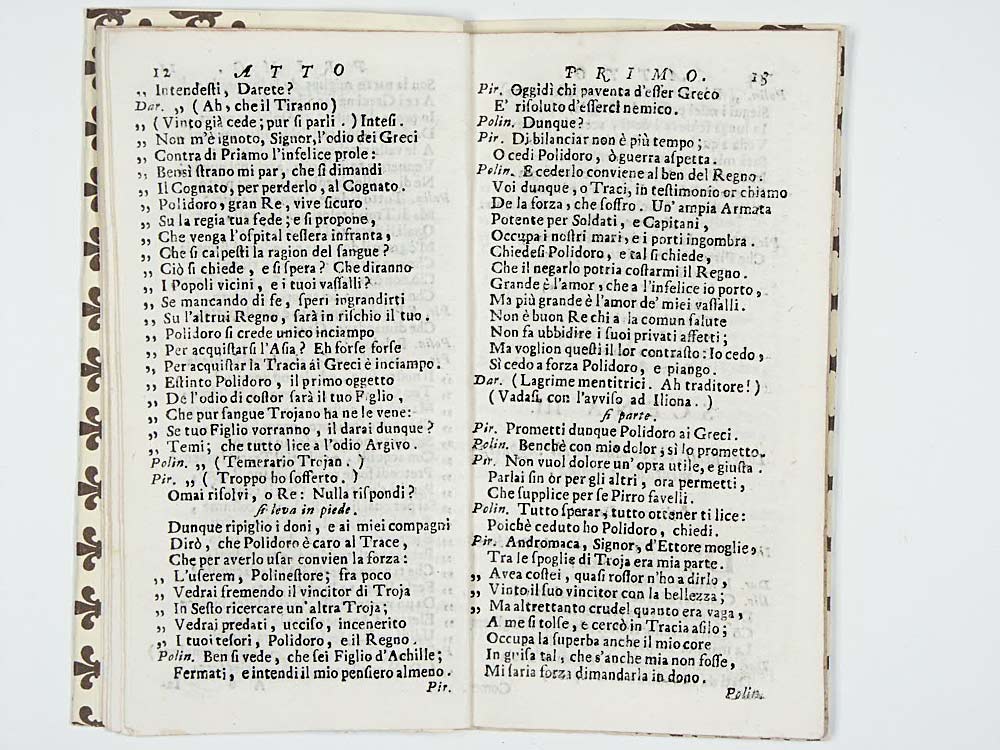 12 ATTO
,, Intendeſti, Darete?
Dar. ,, (Ah, che il Tiranno)
,, (Vinto già cede; pur ſi parli.) Inteſi.
,, Non m'è ignoto, Signor, l'odio dei Greci
,, Contra di Priamo l'infelice prole:
,, Bensì ſtrano mi par, che ſi dimandi
,, Il Cognato, per perderlo, al Cognato.
,, Polidoro, gran Re, vive ſicuro
,, Su la regia tua fede; e ſi propone,
,, Che venga l'oſpital teſſera infranta,
,, Che ſi calpeſti la ragion del ſangue?
,, Ciò ſi chiede, e ſi ſpera? Che diranno
,, I Popoli vicini, e i tuoi vaſſalli?
,, Se mancando di fe, ſperi ingrandirti
,, Su l'altrui Regno, ſarà in riſchio il tuo.
,, Polidoro ſi crede unico inciampo
,, Per acquiſtarſi l'Aſia? Eh forſe forſe
,, Per acquiſtar la Tracia ai Greci è inciampo.
,, Eſtinto Polidoro, il primo oggetto
,, De l'odio di coſtor ſarà il tuo Figlio,
,, Che pur ſangue Trojano ha ne le vene:
,, Se tuo Figlio vorranno, il darai dunque?
,, Temi; che tutto lice a l'odio Argivo.
Polin. ,, (Temerario Trojan.)
Pir. ,, (Troppo ho ſofferto.)
Omai riſolvi, o Re: Nulla riſpondi?
ſi leva in piede.
Dunque ripiglio i doni, e ai miei compagni
Dirò, che Polidoro è caro al Trace,
Che per averlo uſar convien la forza:
,, L'uſerem, Polineſtore; fra poco
,, Vedrai fremendo il vincitor di Troja
,, In Seſto ricercare un'altra Troja;
,, Vedrai predati, ucciſo, incenerito
,, I tuoi teſori, Polidoro, e il Regno.
Polin. Ben ſi vede, che ſei Figlio d'Achille;
Fermati, e intendi il mio penſiero almeno.
Pir.
PRIMO. 13
Pir. Oggidì chi paventa d'eſſer Greco
E' riſoluto d'eſſerci nemico.
Polin. Dunque?
Pir. Di bilanciar non è più tempo;
O cedi Polidoro, ò guerra aſpetta.
Polin. E cederlo conviene al ben del Regno.
Voi dunque, o Traci, in teſtimonio or chiamo
De la forza, che ſoffro. Un'ampia Armata
Potente per Soldati, e Capitani,
Occupa i noſtri mari, e i porti ingombra.
Chiedeſi Polidoro, e tal ſi chiede,
Che il negarlo potria coſtarmi il Regno.
Grande è l'amor, che a l'infelice io porto,
Ma più grande è l'amor de' miei vaſſalli.
Non è buon Re chi a la comun ſalute
Non fa ubbidire i ſuoi privati affetti;
Ma voglion queſti il lor contraſto: Io cedo,
Sì cedo a forza Polidoro, e piango.
Dar. (Lagrime mentitrici. Ah traditore!)
(Vadaſi con l'avviſo ad Iliona.)
ſi parte.
Pir. Prometti dunque Polidoro ai Greci.
Polin. Benchè con mio dolor, sì lo prometto.
Pir. Non vuol dolore un'opra utile, e giuſta.
Parlai ſin òr per gli altri, ora permetti,
Che ſupplice per ſe Pirro favelli.
Polin. Tutto ſperar, tutto ottener ti lice:
Poichè ceduto ho Polidoro, chiedi.
Pir. Andromaca, Signor, d'Ettore moglie,
Tra le ſpoglie di Troja era mia parte.
,, Avea coſtei, quaſi roſſor n'ho a dirlo,
,, Vinto il ſuo vincitor con la bellezza;
,, Ma altrettanto crudel quanto era vaga,
A me ſi tolſe, e cercò in Tracia aſilo;
Occupa la ſuperba anche il mio core
In guiſa tal, che s'anche mia non foſſe,
Mi ſaria forza dimandarla in dono.
Polin.